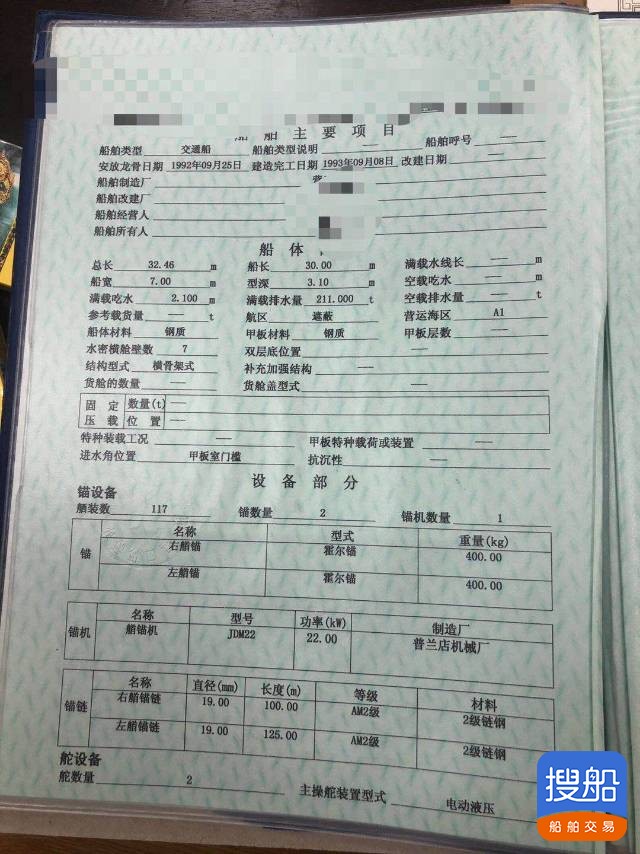 船舶主要项目
船舶类型 交通船 船舶类型说明 — 船舶呼号 —
安放龙骨日期 1992年09月25日 建造完工日期 1993年09月08日 改建日期 —
船舶制造厂
船舶改建厂
船舶经营人
船舶所有人
船体
总长 32.46 m 船长 30.00 m 满载水线长 — m
船宽 7.00 m 型深 3.10 m 空载吃水 — m
满载吃水 2.100 m 满载排水量 211.000 t 空载排水量 — t
参考载货量 — t 航区 遮蔽 营运海区 A1
船体材料 钢质 甲板材料 钢质 甲板层数 —
水密横舱壁数 7 双层底位置 —
结构型式 横骨架式 补充加强结构 —
货舱的数量 — 货舱盖型式 —
固定 数量(t) —
压载 位置 —
特种装载工况 — 甲板特种载荷或装置 —
进水角位置 甲板室门槛 抗沉性 —
设备部分
锚设备
舾装数 117 锚数量 2 锚机数量 1
名称 型式 重量(kg)
锚 右艏锚 霍尔锚 400.00
左艏锚 霍尔锚 400.00
名称 型号 功率(kW) 制造厂
锚机 艏锚机 JDM22 22.00 普兰店机械厂
名称 直径(mm) 长度(m) 等级 材料
锚链 右艏锚链 19.00 100.00 AM2级 2级链钢
左艏锚链 19.00 125.00 AM2级 2级链钢
舵设备
舵数量 2 主操舵装置型式 电动液压
搜船
船舶交易